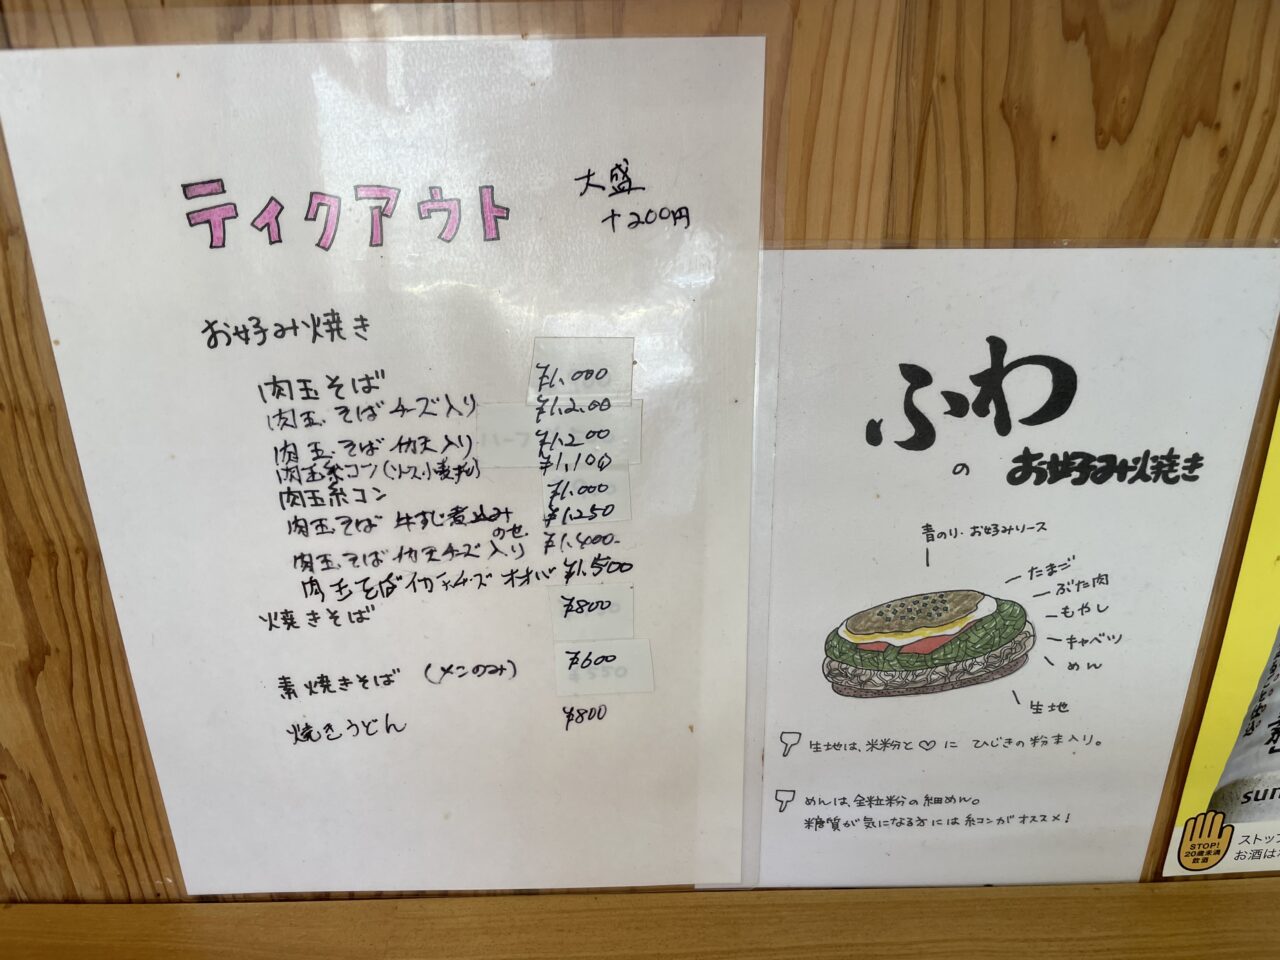 ティクアウト
大盛
+200円
お好み焼き
肉玉そば ¥1,000
肉玉そばチーズ入り ¥1,200
肉玉そばイカ天入り ¥1,200
肉玉糸コン(ソース小麦ギレ) ¥1,100
肉玉糸コン ¥1,000
肉玉そば 牛すじ煮込み のせ ¥1,250
肉玉そばイカ天チーズ入り ¥1,400-
肉玉そばイカ天チーズ オオバ ¥1,500
焼きそば ¥800
素焼きそば (メンのみ) ¥600
焼きうどん ¥800
ふわ
の お好み焼き
青のり・お好みソース
たまご
ぶた肉
もやし
キャベツ
めん
生地
生地は、米粉と♡に ひじきの粉末入り。
めんは、全粒粉の細めん。
糖質が気になる方には糸コンがオススメ!
sun
STOP!
20歳未満
飲酒
ストップ
お酒は